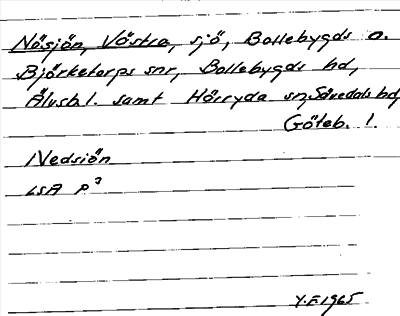 Nösjön, Västra, sjö, Bollebygds o.
Björketorps snr, Bollebygds hd,
Älvsb.l. samt Härryda sn, Sävedals hd,
Göteb. l.
Nedsjön
LSA P³
Y.F 1965